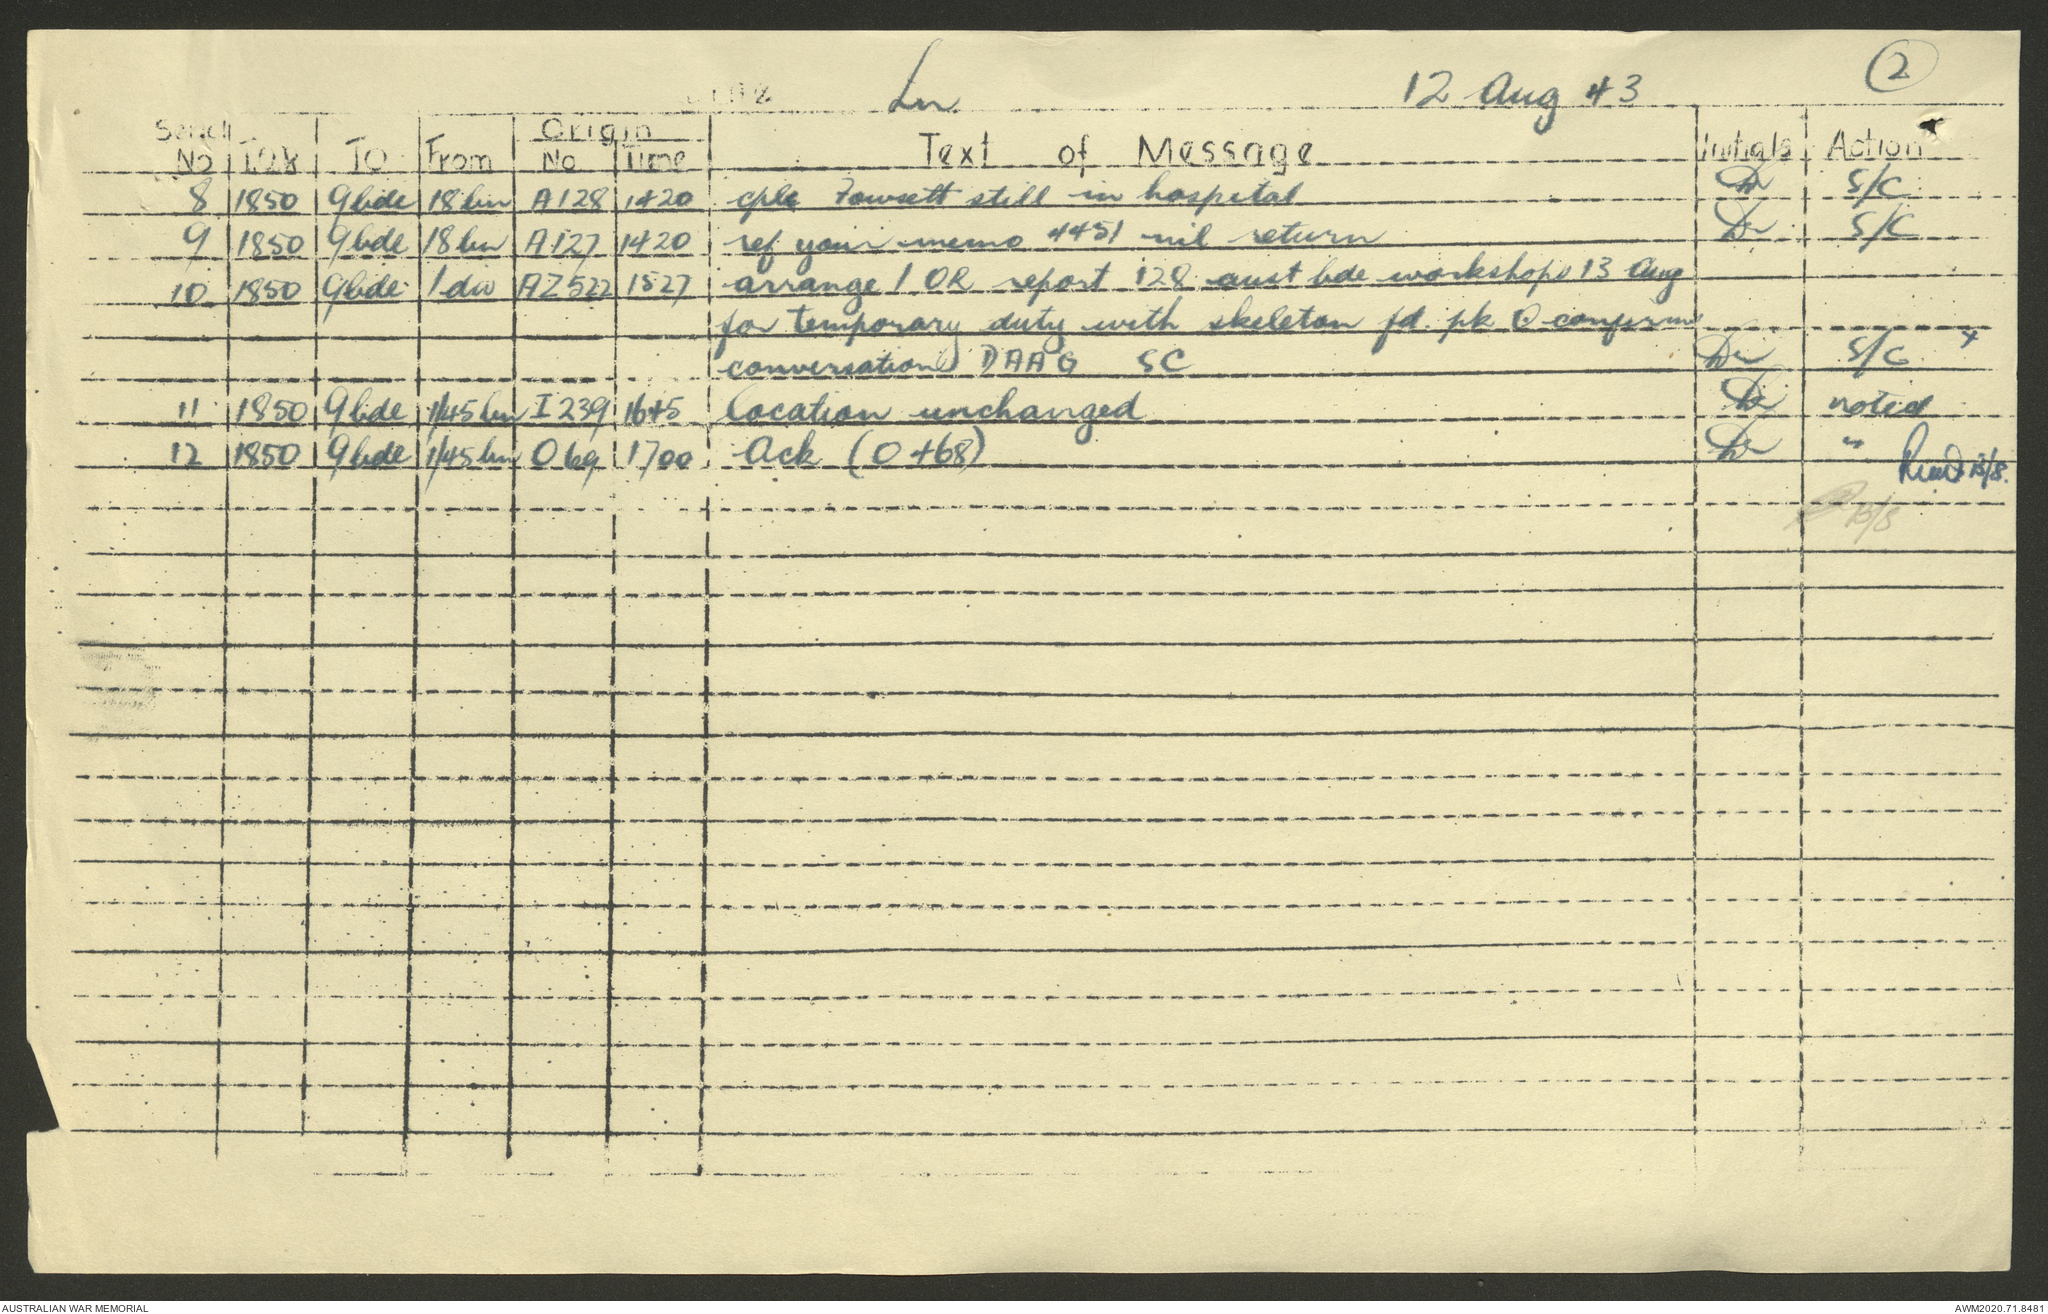 In 12 Aug 43 2
Serial Origin
No To From No Time Text of Message Initials Action
8 1850 9 bde 18 bn A128 1420 cple Fawsett still in hospital S/C
9 1850 9 bde 18 bn A127 1420 ref your memo 4451 nil return S/C
10 1850 9 bde 1 div AZ522 1527 arrange 1 OR report 128 aust bde workshops 13 Aug
for temporary duty with skeleton fd. pk confirm
conversation DAAG SC S/C x
11 1850 9 bde 1/45 bn I239 1645 location unchanged noted
12 1850 9 bde 1/45 bn O69 1700 Ack (O468) "
13/8.
AUSTRALIAN WAR MEMORIAL AWM2020.71.8481